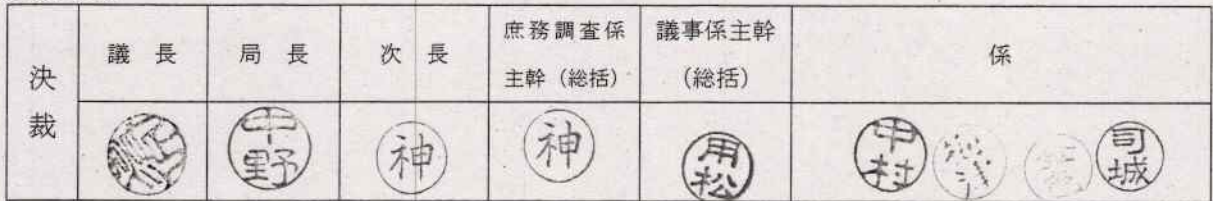 決裁
議長
局長
次長
庶務調査係
主幹（総括）
議事係主幹
（総括）
係
中野
神
神
用松
中村
司城